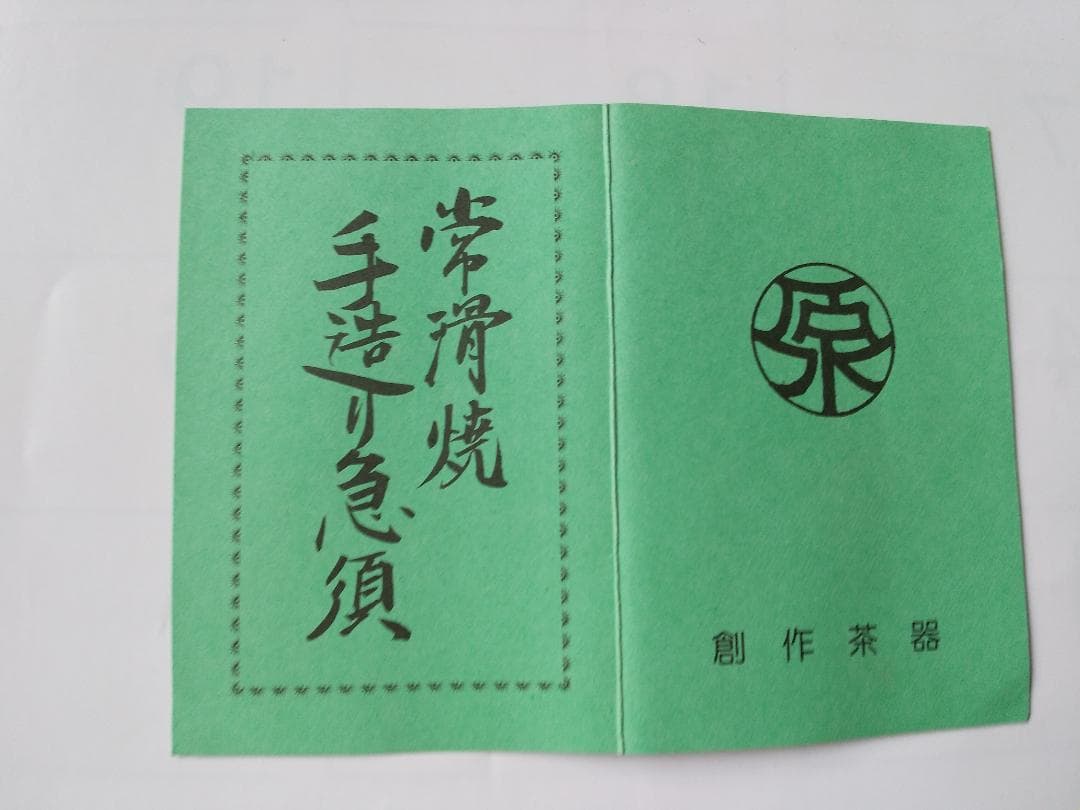 常滑焼
手造り急須
原
創作茶器